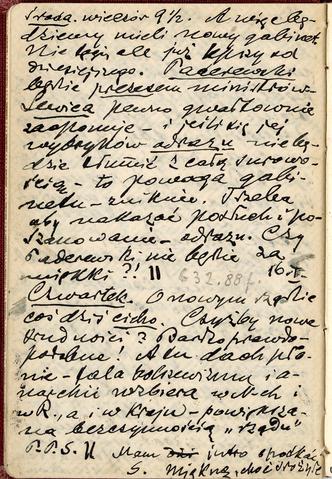 Środa. wieczór 9½. A więc bę-
dziemy mieli nowy gabinet.
Nie tęgi ale już lepszy od
dzisiejszego. Paderewski
będzie prezesem ministrów.
Lewica pewno gwałtownie
zaoponuje – i jeśli się jej
wybryków odrazu nie bę-
dzie tłumić z całą surowo-
ścią – to powaga gabi-
netu – zniknie. Trzeba
aby nakazać posłuch i po-
szanowanie – odrazu. Czy
Paderewski nie będzie za
miękki?! 16.I.
632.88f.
Czwartek. O nowym rządzie
coś dziś cicho. Czyżby nowe
trudności? Bardzo prawdo-
podobne! A tu dach pło-
nie – fala bolszewizmu i a-
narchii wzbiera w N-ch i
w R., a i w Kraju – powiększa-
na bezczynnością „rządu"
P.P.S. Mam jutro spotkać
S. choć